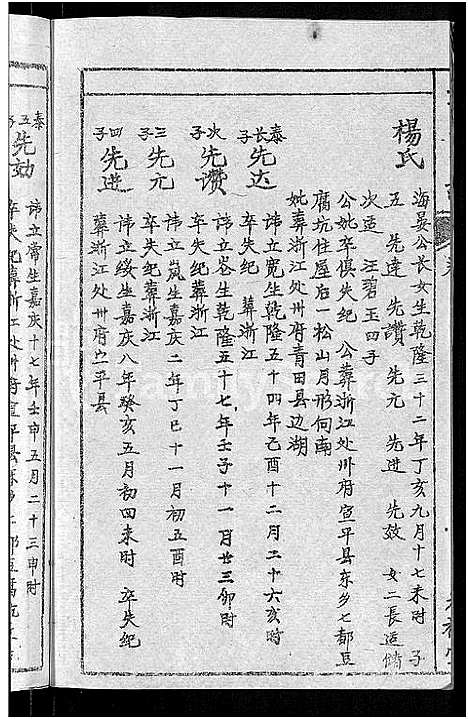 楊氏
海晏公长女生乾隆三十二年丁亥九月十七未时 子
五 先達 先讚 先元 先进 先效 女二長适
次适 汪碧玉四子
公妣卒俱失纪 公葬浙江处州府宣平县东乡七都豆
腐坑住屋后一松山月形向南
妣葬浙江处州府青田县边湖
泰长子 先达
讳立宽生乾隆五十四年己酉十二月二十六亥时
卒失纪 葬浙江
次子 先讚
讳立岺生乾隆五十七年壬子十一月廿三卯时
卒失纪葬浙江
三子 先元
讳立岚生嘉庆二年丁巳十一月初五酉时
卒失纪葬浙江
四子 先进
讳立绥生嘉庆八年癸亥五月初四未时 卒失纪
葬浙江处州府宁平县
泰五子 先効
讳立常生嘉庆十七年壬申五月二十三申时
卒失纪葬浙江处州府宣平县东乡